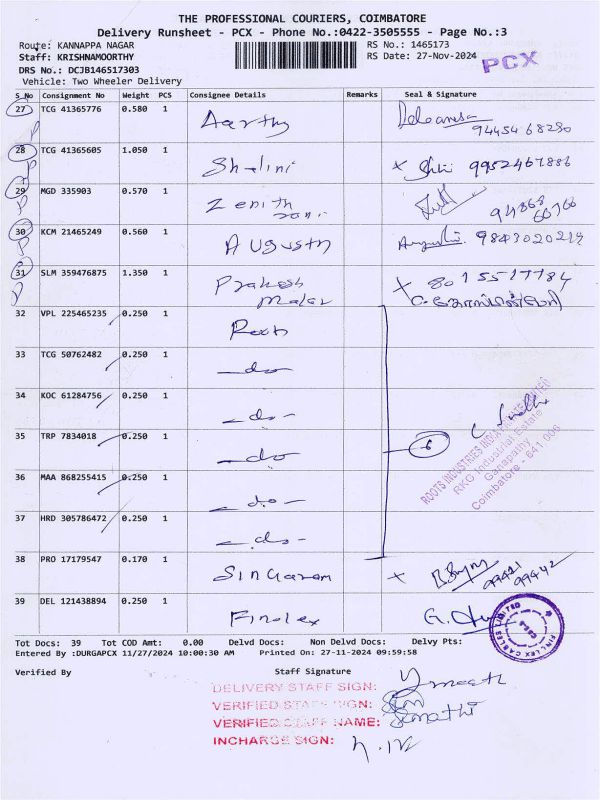 THE PROFESSIONAL COURIERS, COIMBATORE
Delivery Runsheet - PCX - Phone No.:0422-3505555 - Page No.:3
Route: KANNAPPA NAGAR
RS No.: 1465173
Staff: KRISHNAMOORTHY
RS Date: 27-Nov-2024
PCX
DRS No.: DCJB146517303
Vehicle: Two Wheeler Delivery
S_No Consignment No Weight PCS Consignee Details Remarks Seal & Signature
27 TCG 41365776 0.580 1 Aarthy
94454 68230
28 TCG 41365605 1.050 1 Shalini x 9952467886
29 MGD 335903 0.570 1 Zenith
94868
66766
30 KCM 21465249 0.560 1 Augustn 9843020219
31 SLM 359476875 1.350 1 Prakash Malar x 8015517784
32 VPL 225465235 0.250 1 Roots
33 TCG 50762482 0.250 1 -do-
34 KOC 61284756 0.250 1 -do-
35 TRP 7834018 0.250 1 -do- 6
ROOTS INDUSTRIES INDIA PRIVATE LIMITED
RKG Industrial Estate
Ganapathy
Coimbatore - 641 006
36 MAA 868255415 0.250 1 -do-
37 HRD 305786472 0.250 1 -do-
38 PRO 17179547 0.170 1 Singaram x
99421
99442
39 DEL 121438894 0.250 1 Finolex
FINOLEX CABLES LIMITED
Tot Docs: 39 Tot COD Amt: 0.00 Delvd Docs: Non Delvd Docs: Delvy Pts:
Entered By :DURGAPCX 11/27/2024 10:00:30 AM Printed On: 27-11-2024 09:59:58
Verified By Staff Signature
DELIVERY STAFF SIGN:
VERIFIED STAFF SIGN:
VERIFIED STAFF NAME: Sumathi
INCHARGE SIGN: